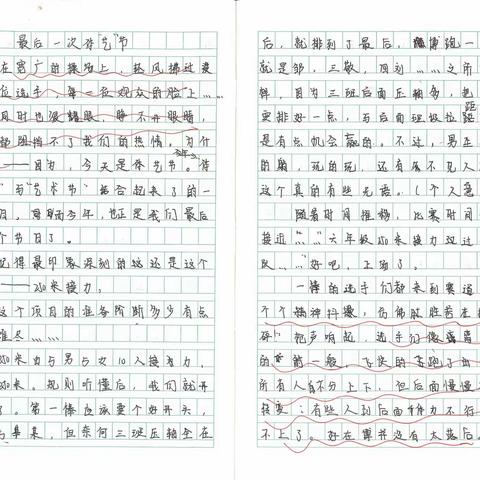 最后一次体"艺"节
在宽广的操场上，秋风拂过麦
位选手、每一位观众的脸上……
风时也很耀眼，睁不开眼睛，
都阻挡不了我们的热情。为什
今年
——因为，今天是体艺节。体
"与"艺术节"结合起来了的一
日，今年，也正是我们最后
个节日了。
记得最印象深刻的这还是这个
——250米接力。
这个项目的准备阶断多少有点
难尽……
250米由5男5女10人接力，
250米。规则听懂后，我们就开
了。第一棒应该要个好开头，
集某，但奈何三班压轴全在
后，就排到了最后，跑一
就是邹，三敬，四刘……之所
样，因为三班后面压轴多，把
距
更排好一点，与后面班级拉
是有点机会赢的。不过，男生
的躺，玩的玩，还有威不见人
这个真的有些无语。（个人意
随着时间推移，比赛时间
接近"……"六年级250米接力过过
队……"好吧，上场了。
一棒的选手们都来到赛道
个个精神抖擞，仿佛就胜若在
砰！把声响起，选手们像离
的箭一般，飞快的跑了出
所有人都不分上下，但后面慢慢
转变：有些人到后面体力不行
不上了。好在曹并没有太落后。